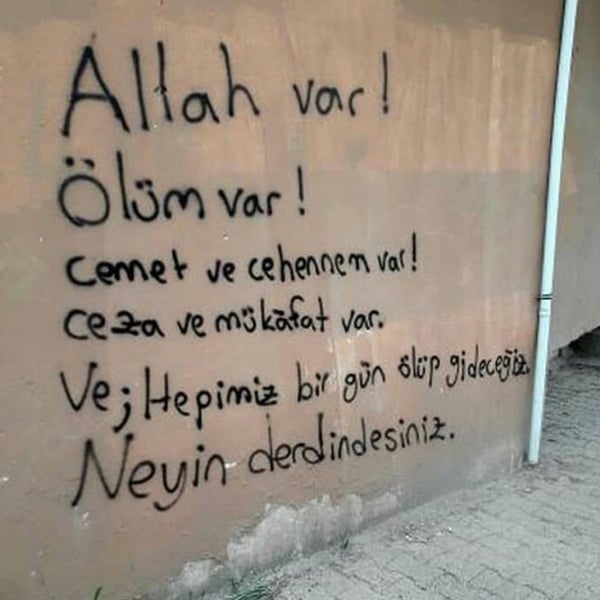 Allah var!
Ölüm var!
cemet ve cehennem var!
ceza ve mükâfat var.
Ve; Hepimiz bir gün ölüp gideceğiz.
Neyin derdindesiniz.